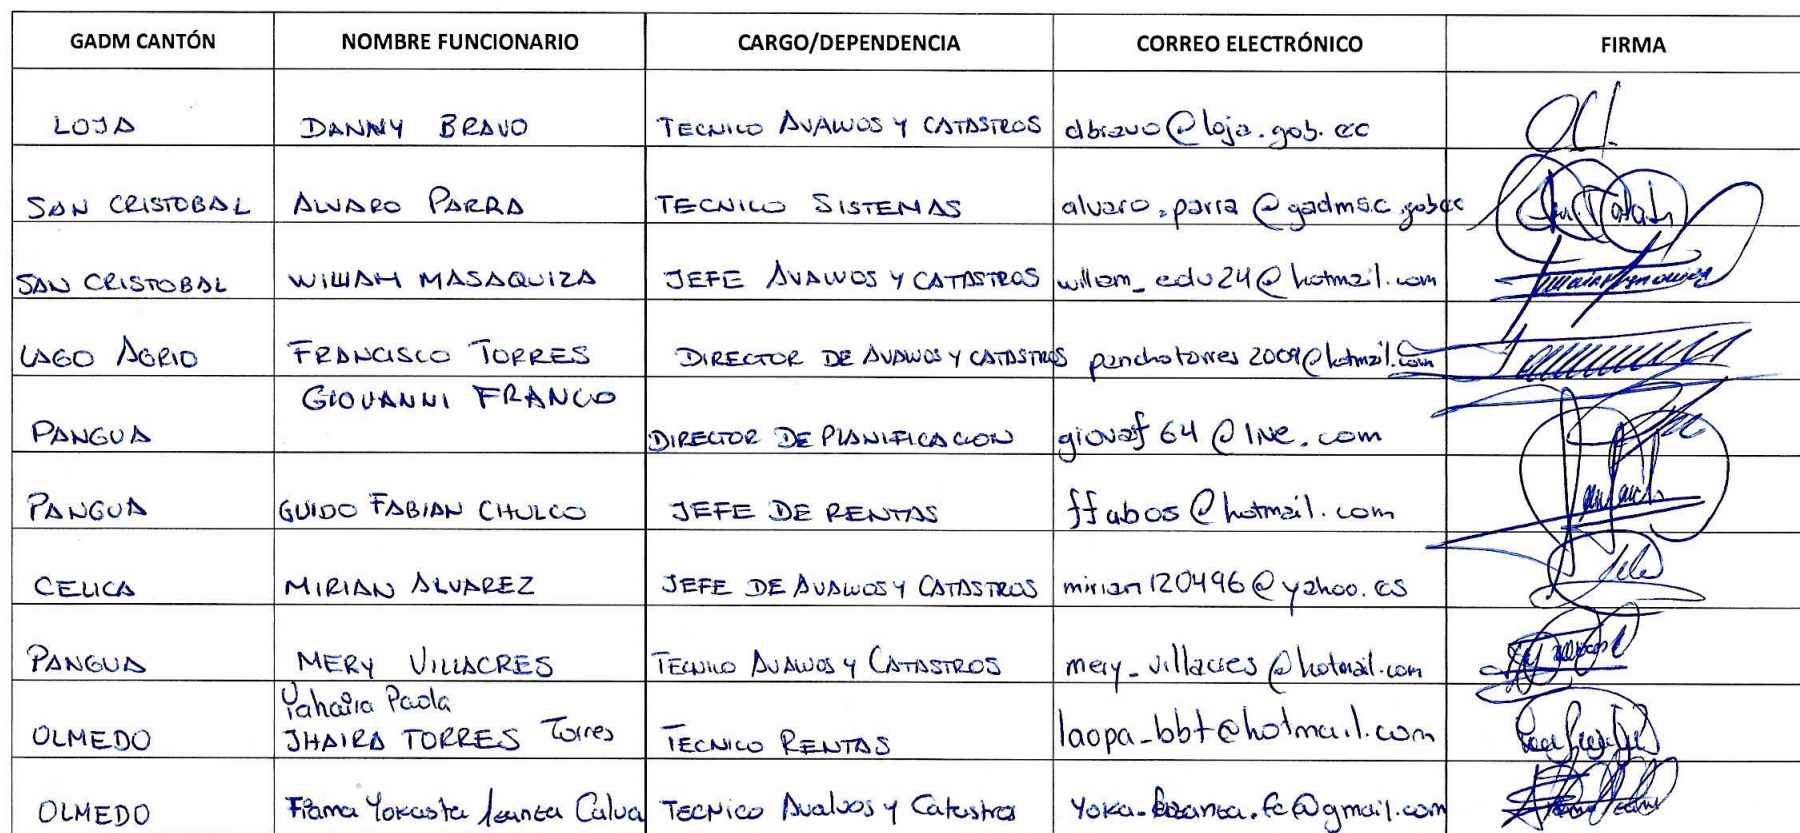 GADM CANTÓN NOMBRE FUNCIONARIO CARGO/DEPENDENCIA CORREO ELECTRÓNICO FIRMA
LOJA DANNY BRAVO TECNICO AVALUOS Y CATASTROS dbravo@loja.gob.ec
SAN CRISTOBAL ALVARO PARRA TECNICO SISTEMAS alvaro.parra@gadmsc.gob.ec
SAN CRISTOBAL WILLIAM MASAQUIZA JEFE AVALUOS Y CATASTROS william_edu24@hotmail.com
LAGO AGRIO FRANCISCO TORRES DIRECTOR DE AVALUOS Y CATASTROS panchotorres2009@hotmail.com
PANGUA GIOVANNI FRANCO DIRECTOR DE PLANIFICACION giovaf64@live.com
PANGUA GUIDO FABIAN CHULCO JEFE DE RENTAS ffabos@hotmail.com
CELICA MIRIAN ALVAREZ JEFE DE AVALUOS Y CATASTROS mirian120496@yahoo.es
PANGUA MERY VILLACRES TECNICO AVALUOS Y CATASTROS mery_villacres@hotmail.com
Yahaira Paola
OLMEDO JHAIRA TORRES Torres TECNICO RENTAS laopa_bbt@hotmail.com
OLMEDO Fiama Yokasta Calva TECNICO Avaluos y Catastro